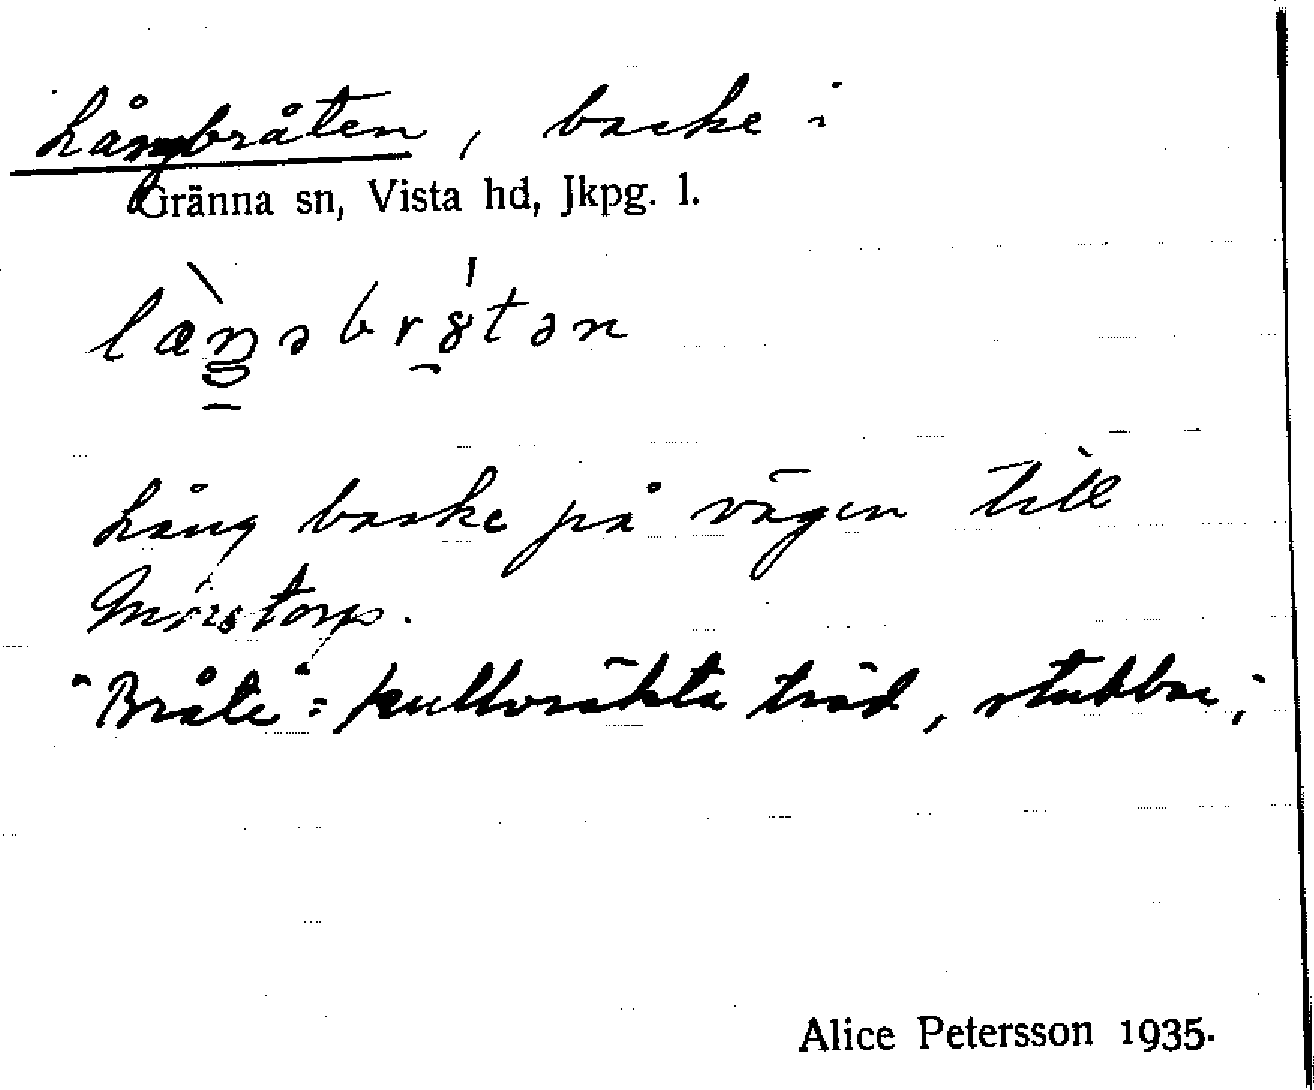 Långbråten, backe i
Gränna sn, Vista hd, Jkpg. l.
Lång backe på vägen till
"Bråte": kullvräkta träd, stubbar,
Alice Petersson 1935.